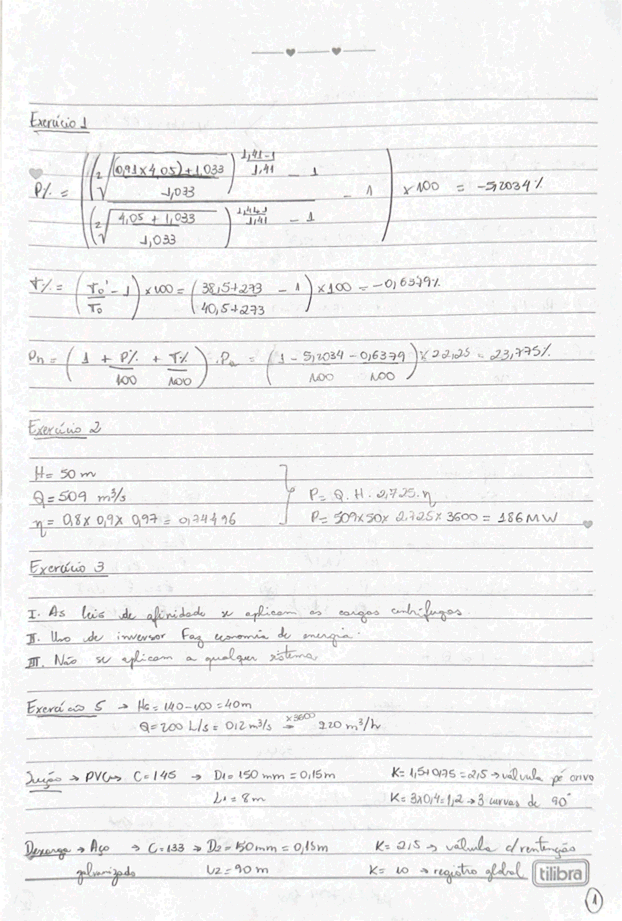 Exercício 1
P% = (((²√((0,91 x 4,05) + 1,033)/1,033)^((1,41-1)/1,41) - 1)/((²√(4,05 + 1,033)/1,033)^((1,41-1)/1,41) - 1) - 1) x 100 = -5,2034%
T% = (To'/To - 1) x 100 = ((38,5+273)/(40,5+273) - 1) x 100 = -0,6379%
Pn = (1 + P%/100 + T%/100) . Pe = (1 - 5,2034/100 - 0,6379/100) x 22,25 = 23,775%
Exercício 2
H = 50 m
Q = 509 m³/s
P = Q. H. 2,725. η
η = 0,8 x 0,9 x 0,97 = 0,74496
P = 509x50x 2,725x 3600 = 186 MW
Exercício 3
I. As leis de afinidade se aplicam as cargas centrífugas
II. Uso de inversor Faz economia de energia.
III. Não se aplicam a qualquer sistema
Exercício 5 → Hs = 140-100 = 40m
Q = 200 L/s = 0,2 m³/s x3600 → 220 m³/h
Sução → PVC → C = 145 → D1 = 150 mm = 0,15m K = 1,5+0,75 = 2,5 → válvula pé crivo
L1 = 8m K = 3x0,4 = 1,2 → 3 curvas de 90°
Descarga → Aço → C = 133 → D2 = 150mm = 0,15m K = 2,5 → válvula c/ rentenção
galvanizado L2 = 90 m K = 10 → registro global tilibra
1